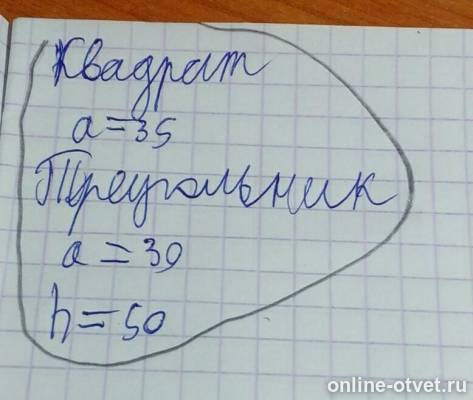 Квадрат
a=35
Треугольник
a=30
h=50
online-otvet.ru